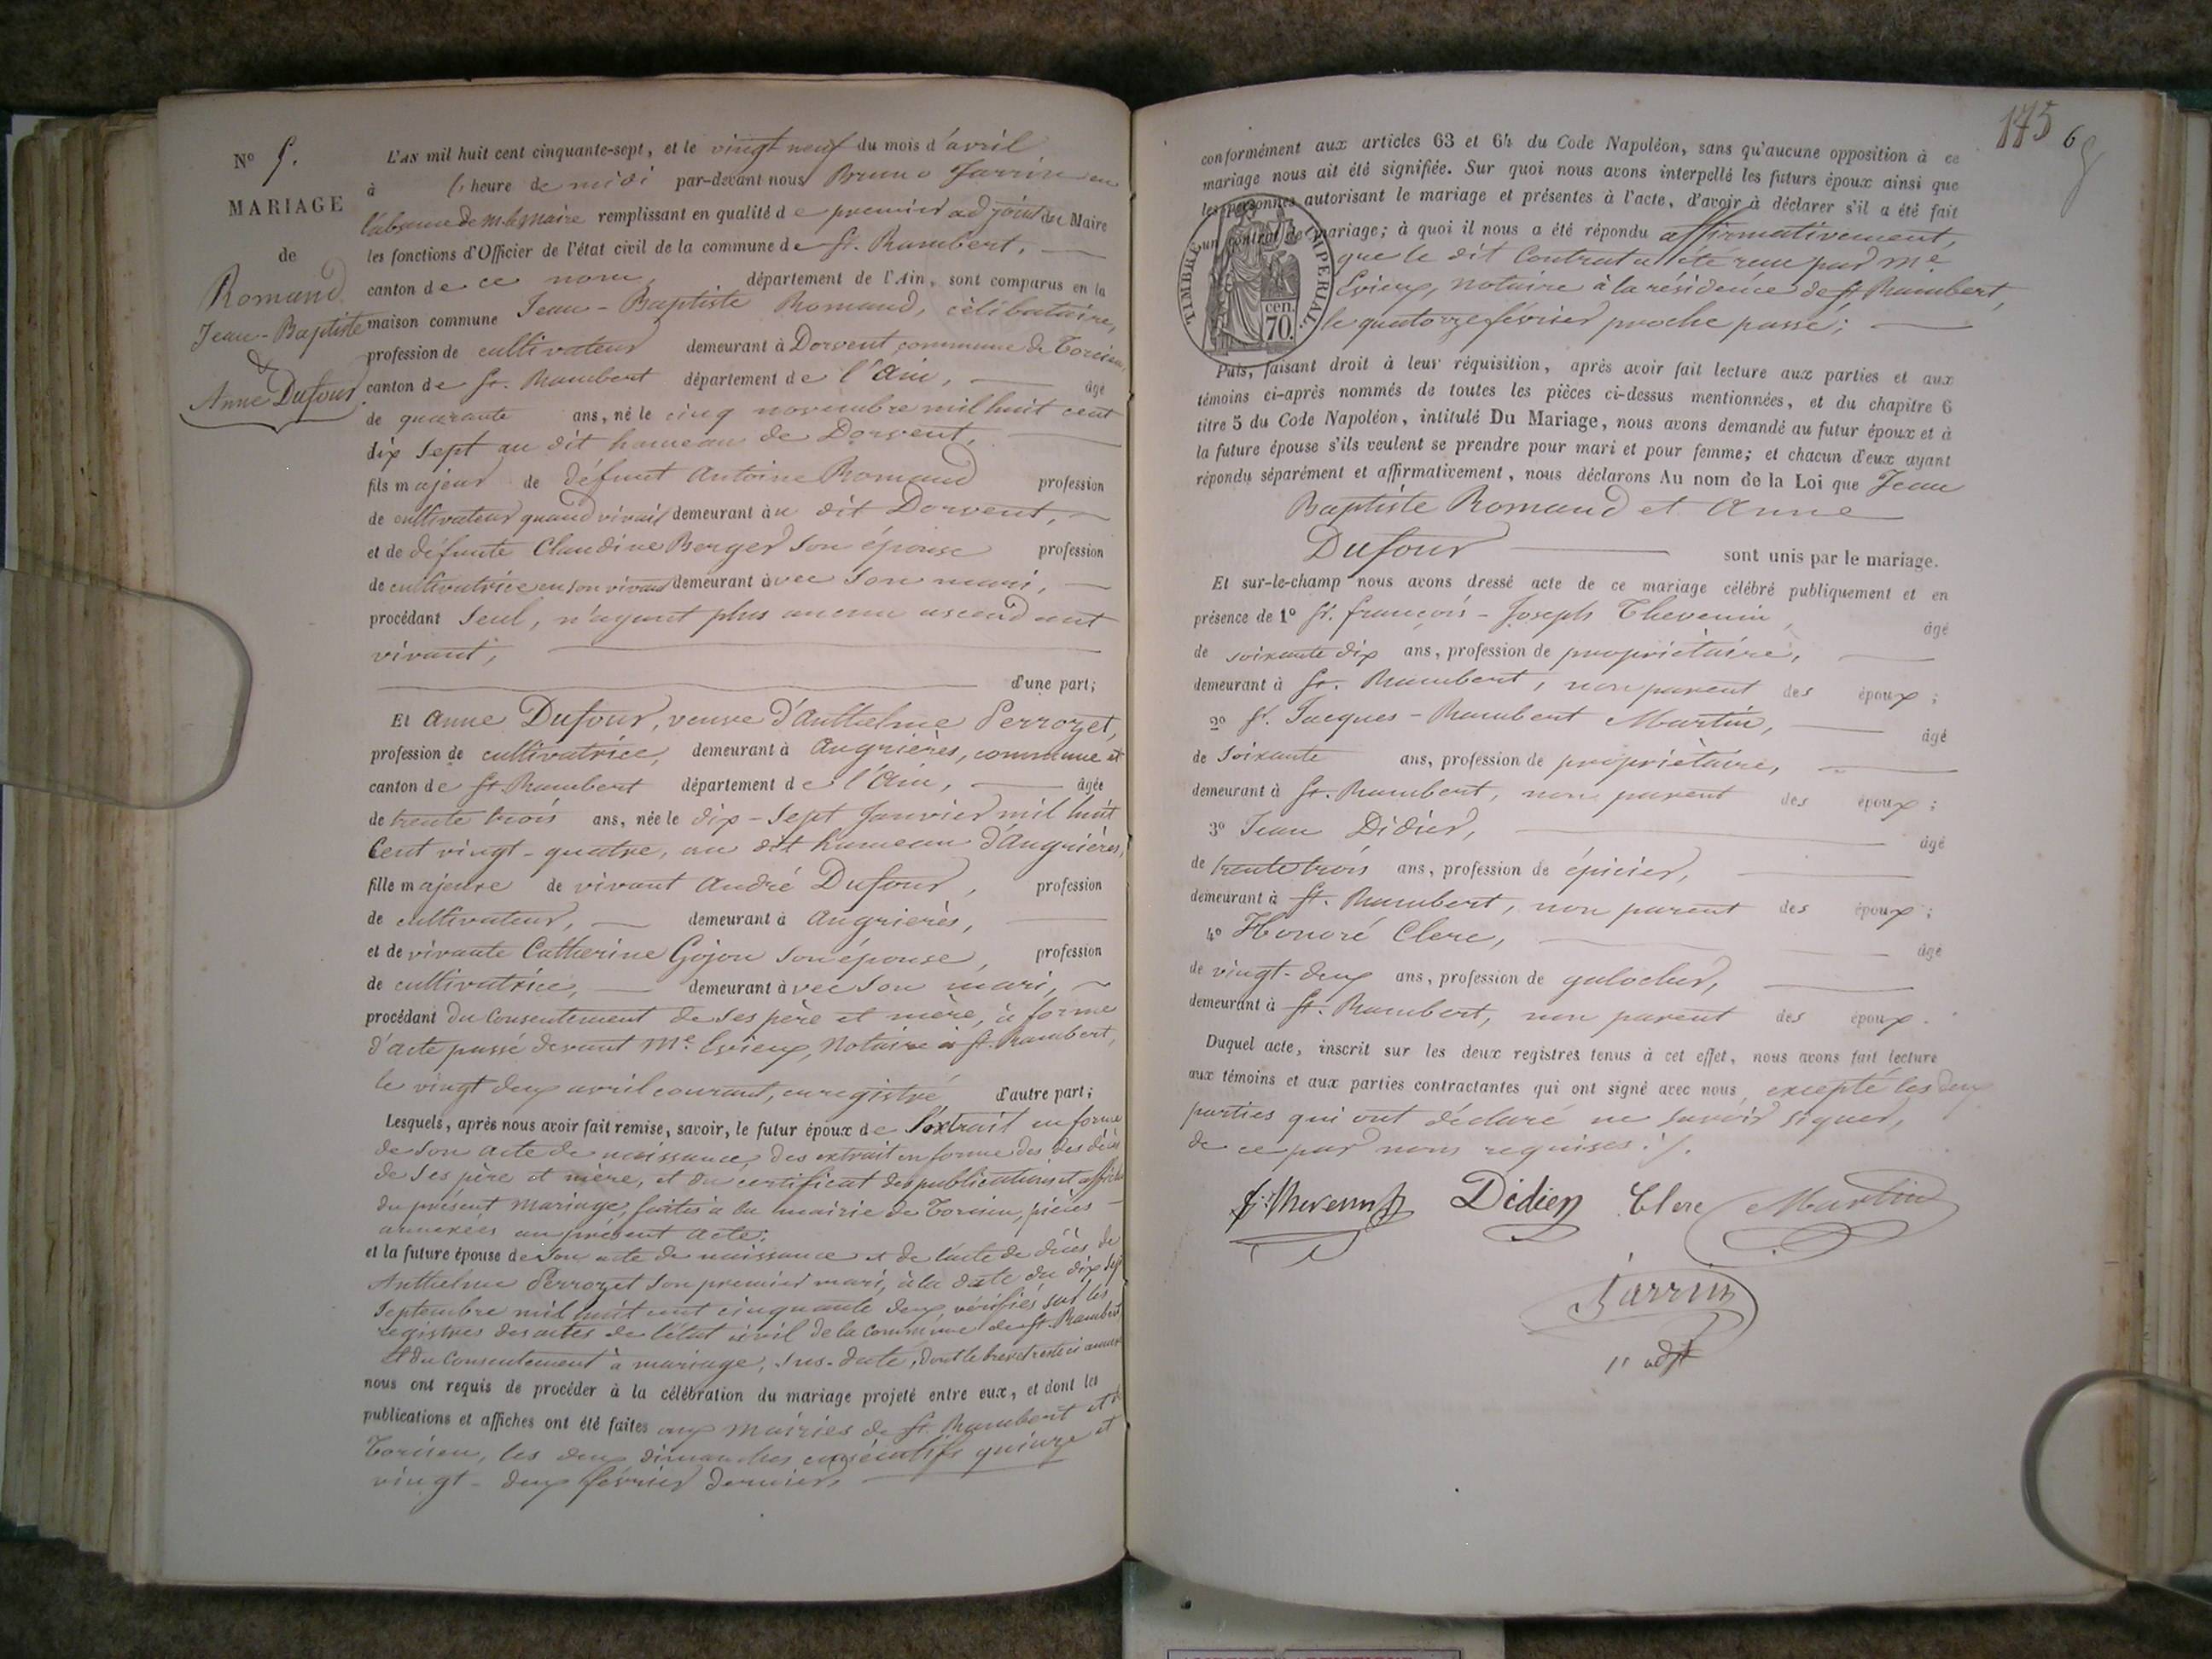 N° 5.
MARIAGE
de
Romand
Jean-Baptiste
&
Anne Dufour.
L'AN mil huit cent cinquante-sept, et le vingt neuf du mois d'avril
à l'heure de midi par-devant nous Bruno Jarrin en
l'absence de m. le maire remplissant en qualité de premier adjoint du Maire
les fonctions d'Officier de l'état civil de la commune de St. Rambert,
canton de ce nom, département de l'Ain, sont comparus en la
maison commune Jean-Baptiste Romand, célibataire,
profession de cultivateur demeurant à Dorvent, commune de Torcieu,
canton de St. Rambert département de l'Ain, âgé
de quarante ans, né le cinq novembre mil huit cent
dix sept au dit hameau de Dorvent,
fils majeur de défunt Antoine Romand profession
de cultivateur quand vivait demeurant au dit Dorvent,
et de défunte Claudine Berger son épouse profession
de cultivatrice en son vivant demeurant avec son mari,
procédant seul, n'ayant plus aucun ascendant
vivant,
d'une part;
Et Anne Dufour, veuve d'Anthelme Perrozet,
profession de cultivatrice, demeurant à Angrières, commune et
canton de St Rambert département de l'Ain, âgée
de trente trois ans, née le dix-sept Janvier mil huit
cent vingt-quatre, au dit hameau d'Angrières,
fille majeure de vivant André Dufour, profession
de cultivateur, demeurant à Angrières,
et de vivante Catherine Gojon son épouse, profession
de cultivatrice, demeurant avec son mari,
procédant du consentement de ses père et mère, à forme
d'acte passé devant Me. Evieux, Notaire à St. Rambert,
le vingt deux avril courant, enregistré d'autre part;
Lesquels, après nous avoir fait remise, savoir, le futur époux de l'extrait en forme
de son acte de naissance, des extrait en forme des des décès
de ses père et mère, et du certificat des publications et affiches
du présent mariage, faites à la mairie de Torcieu, pièces
annexées au présent acte;
et la future épouse de son acte de naissance et de l'acte de décès de
Anthelme Perrozet son premier mari, à la date du dix sept
septembre mil huit cent cinquante deux, vérifiés sur les
registres des actes de l'état civil de la commune de St. Rambert,
et du consentement à mariage, sus-daté, dont le brevet reste ci annexé
nous ont requis de procéder à la célébration du mariage projeté entre eux, et dont les
publications et affiches ont été faites aux mairies de St. Rambert et
Torcieu, les deux dimanches consécutifs quinze et
vingt-deux février dernier,
175
6
conformément aux articles 63 et 64 du Code Napoléon, sans qu'aucune opposition à ce
mariage nous ait été signifiée. Sur quoi nous avons interpellé les futurs époux ainsi que
les personnes autorisant le mariage et présentes à l'acte, d'avoir à déclarer s'il a été fait
un contrat de mariage; à quoi il nous a été répondu affirmativement,
que le dit Contrat a été reçu par Me
Evieux, notaire à la résidence de St Rambert,
le quatorze février proche passé;
TIMBRE IMPERIAL.
cen.
70.
Puis, faisant droit à leur réquisition, après avoir fait lecture aux parties et aux
témoins ci-après nommés de toutes les pièces ci-dessus mentionnées, et du chapitre 6
titre 5 du Code Napoléon, intitulé Du Mariage, nous avons demandé au futur époux et à
la future épouse s'ils veulent se prendre pour mari et pour femme; et chacun d'eux ayant
répondu séparément et affirmativement, nous déclarons Au nom de la Loi que Jean
Baptiste Romand et Anne
Dufour sont unis par le mariage.
Et sur-le-champ nous avons dressé acte de ce mariage célébré publiquement et en
présence de 1° Sr. françois-Joseph Thevenin, âgé
de soixante dix ans, profession de propriétaire,
demeurant à St. Rambert, non parent des époux;
2° Sr. Jacques-Rambert Martin, âgé
de soixante ans, profession de propriétaire,
demeurant à St. Rambert, non parent des époux;
3° Jean Didier, âgé
de trente trois ans, profession de épicier,
demeurant à St. Rambert, non parent des époux;
4° Honoré Clerc, âgé
de vingt-deux ans, profession de galocher,
demeurant à St. Rambert, non parent des époux.
Duquel acte, inscrit sur les deux registres tenus à cet effet, nous avons fait lecture
aux témoins et aux parties contractantes qui ont signé avec nous, excepté les deux
parties qui ont déclaré ne savoir signer,
de ce par nous requises ./.
f. Thevenin Didier Clerc Martin
Jarrin
1r adjt